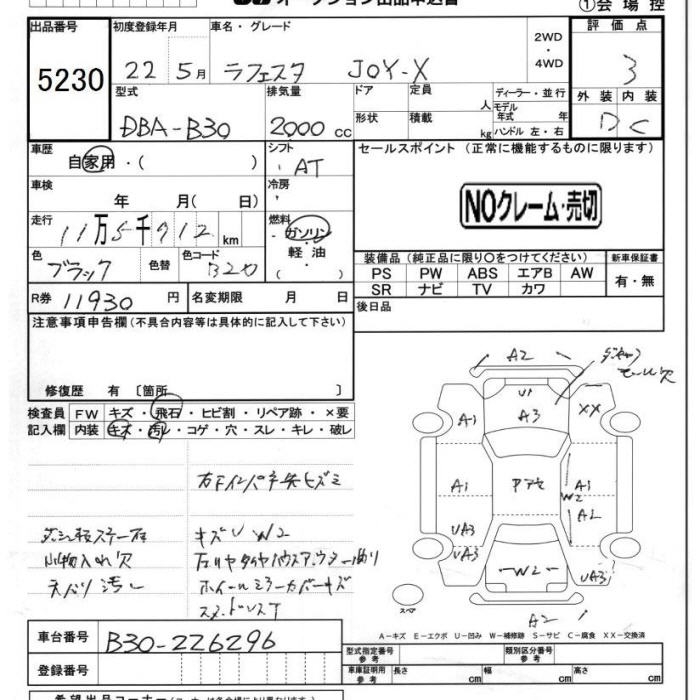 オークション出品申込書
①会場控
出品番号
5230
初度登録年月
22 5月
車名・グレード
ラフェスタ JOY-X
2WD
・
4WD
評価点
3
外装 内装
D C
型式
DBA-B30
排気量
2000 cc
ドア
形状
定員
人
積載
kg
ディーラー・並行
モデル年式 年
ハンドル 左・右
車歴
自家用・( )
シフト
AT
セールスポイント (正常に機能するものに限ります)
NOクレーム・売切
車検
年 月( 日)
冷房
走行
11万5千912 km
燃料
ガソリン
軽油
( )
色
ブラック
色替
色コード
B20
装備品 (純正品に限り○をつけてください)
新車保証書
PS PW ABS エアB AW
有・無
SR ナビ TV カワ
R券 11930 円
名変期限 月 日
後日品
注意事項申告欄 (不具合内容等は具体的に記入して下さい)
修復歴 有 〔箇所 〕
検査員記入欄
FW キズ・飛石・ヒビ割・リペア跡・×要
内装 キズ・汚レ・コゲ・穴・スレ・キレ・破レ
A2
モール欠
U1
A3
XX
A1
A1
A1
W2
A2
UA3
UA3
UA3
W2
A2
スペア
小物入れ欠
キズU W2
A-キズ E-エクボ U-凹み W-補修跡 S-サビ C-腐食 XX-交換済
車台番号
B30-226296
登録番号
型式指定番号
参考
類別区分番号
参考
車庫証明用
参考
長さ cm
幅 cm
高さ cm